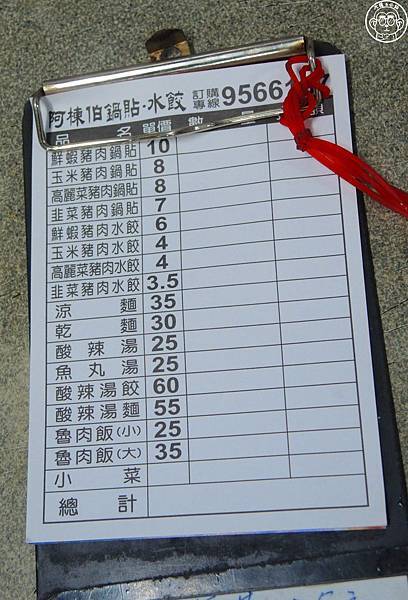 阿棟伯鍋貼·水餃 訂購專線 9566
品名 單價 數
鮮蝦豬肉鍋貼 10
玉米豬肉鍋貼 8
高麗菜豬肉鍋貼 8
韭菜豬肉鍋貼 7
鮮蝦豬肉水餃 6
玉米豬肉水餃 4
高麗菜豬肉水餃 4
韭菜豬肉水餃 3.5
涼麵 35
乾麵 30
酸辣湯 25
魚丸湯 25
酸辣湯餃 60
酸辣湯麵 55
魯肉飯(小) 25
魯肉飯(大) 35
小菜
總計